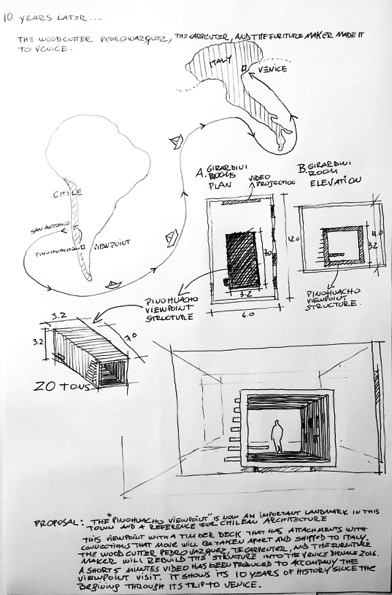 10 YEARS LATER...
THE WOODCUTTER PEDRO VAZQUEZ, THE CARPENTER, AND THE FURNITURE MAKER MADE IT
TO VENICE.
ITALY
VENICE
CHILE
SAN ANTONIO
PINOHUACHO
VIEWPOINT
A. GIRARDINI
ROOMS
PLAN
VIDEO
PROJECTION
B. GIRARDINI
ROOM
ELEVATION
12.0
7.0
3.2
6.0
4.0
3.2
PINOHUACHO
VIEWPOINT
STRUCTURE
PINOHUACHO
VIEWPOINT
STRUCTURE.
3.2
3.2
7.0
20 TONS
PROPOSAL: THE "PINOHUACHO VIEWPOINT" IS NOW AN IMPORTANT LANDMARK IN THIS
TOWN AND A REFERENCE FOR CHILEAN ARCHITECTURE
THIS VIEWPOINT WITH A TIMBER DECK THAT HAS ATTACHMENTS WITH
CONNECTIONS THAT MOVE WILL BE TAKEN APART AND SHIPPED TO ITALY.
THE WOOD CUTTER PEDRO VAZQUEZ, TE CARPENTER, AND THE FURNITURE
MAKER WILL REBUILD THE STRUCTURE INTO THE VENICE BIENALE 2016.
A SHORT 5' MINUTES VIDEO HAS BEEN PRODUCED TO ACCOMPANY THE
VIEWPOINT VISIT. IT SHOWS ITS 10 YEARS OF HISTORY SINCE THE
BEGINING THROUGH ITS TRIP TO VENICE.